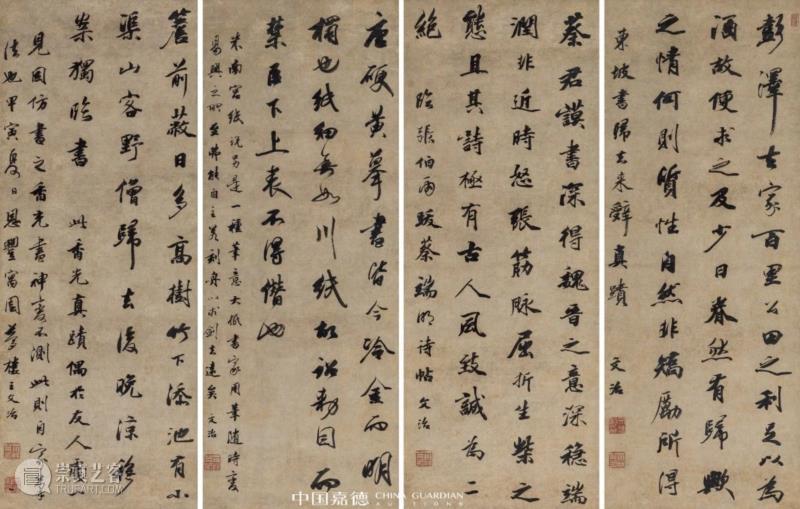 彭泽去家百里公田之利足以為
酒故便求之及少日眷然有歸歟
之情何則質性自然非矯勵所得
東坡書歸去来辭真蹟 文治
蔡君謨書深得魏晋之意深穩端
潤非近時怒張筋脉屈折生柴之
態且其詩極有古人風致誠為二
絶 臨張伯雨跋蔡端明诗帖 文治
唐硬黄摹書皆今冷金而明
榻也紙細無如川紙故詔勅目而
禁臣下上表不得僭也
米南宫紙说另是一種筆意大低書家用筆隨時变
易興之所至弗能自主若刻舟以求剑去遠矣 文治
簷前蔌日多高樹竹下添池有小
渠山客野僧歸去後晚涼移
案獨臨書 此香光真蹟偶於友人處
見因仿書之香光書神妻不測此則自家筆
法也甲寅夏日恩豐寓園夢樓王文治
崇真艺客
中国嘉德 CHINA GUARDIAN
AUCTIONS